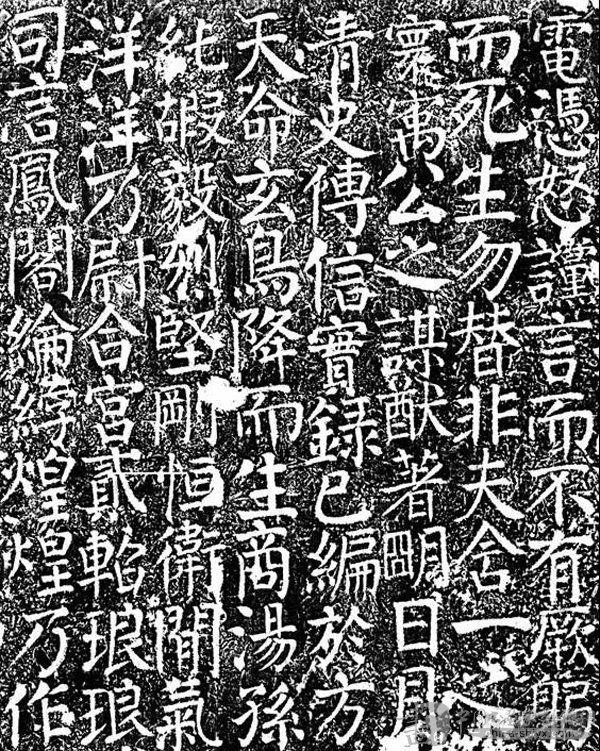 電憑怒謹言而不有厥躬
而死生勿替非夫合一
寰寓公之謀猷著朙日月
青史傳信實録已編於方
天命玄鳥降而生商湯孫
純嘏毅烈堅剛恒衛間氣
洋洋乃尉合宮貳軺琅琅
司言鳳閣綸綍煌煌乃作